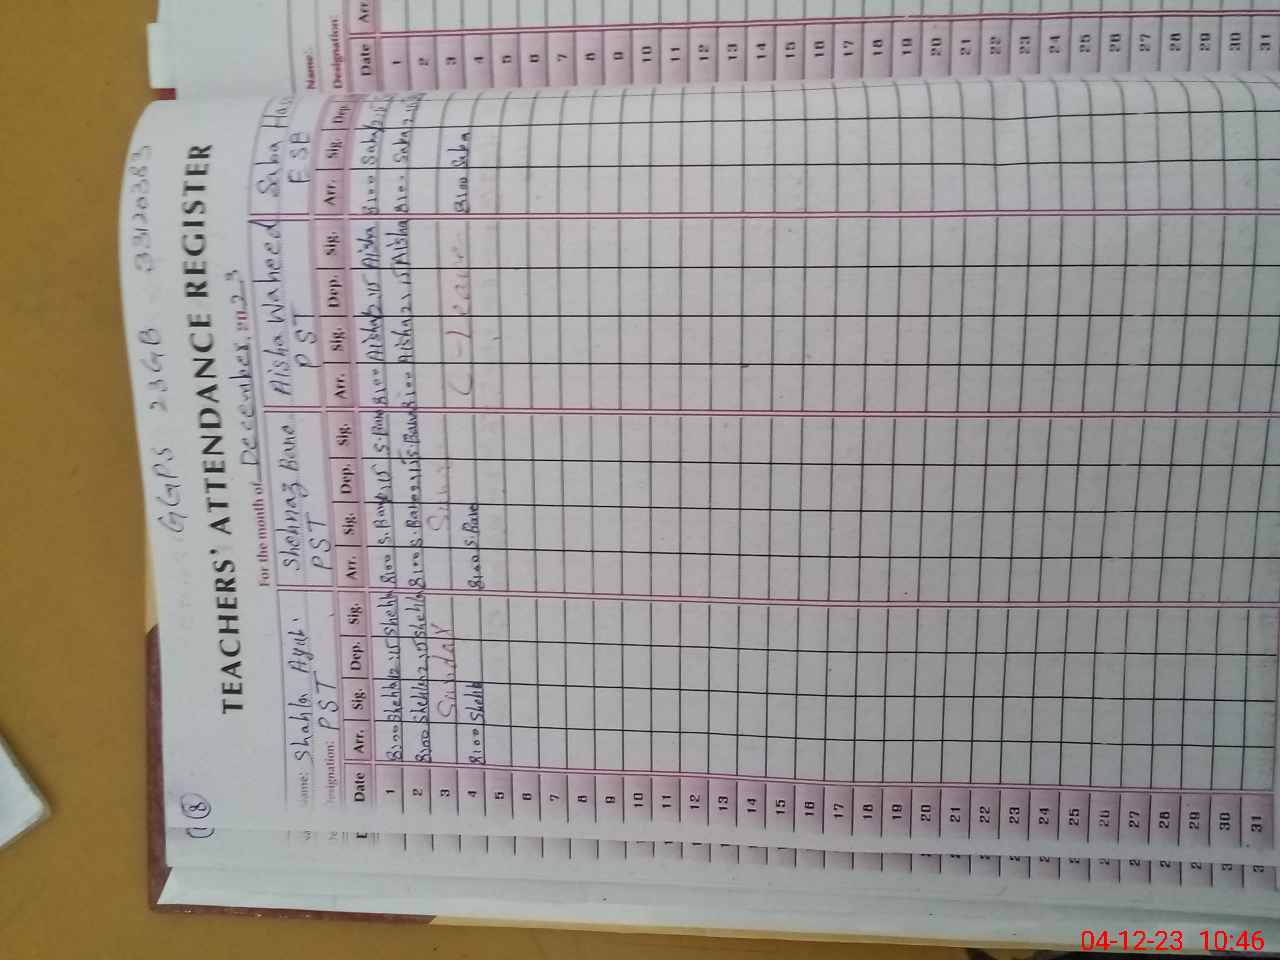 18
GGPS 23GB 33120383
TEACHERS' ATTENDANCE REGISTER
For the month of December, 2023
Name: Shahla Ayub. Shehnaz Bano. Aisha Waheed Saba
Designation: PST PST PST ESE
Date Arr. Sig. Dep. Sig. Arr. Sig. Dep. Sig. Arr. Sig. Dep. Sig. Arr. Sig. Dep.
1 8:00 Shehla 2:15 Shehla 8:00 S.Bano 2:15 S.Bano 8:00 Aisha 2:15 Aisha 8:00 Saba 2:15
2 8:00 Shehla 2:15 Shehla 8:00 S.Bano 2:15 S.Bano 8:00 Aisha 2:15 Aisha 8:00 Saba 2:15
3 Sunday
4 8:00 Shehla 8:00 S.Bano C-leave 8:00 Saba
5
6
7
8
9
10
11
12
13
14
15
16
17
18
19
20
21
22
23
24
25
26
27
28
29
30
31
Name:
Designation:
Date Arr.
1
2
3
4
5
6
7
8
9
10
11
12
13
14
15
16
17
18
19
20
21
22
23
24
25
26
27
28
29
30
31
04-12-23 10:46